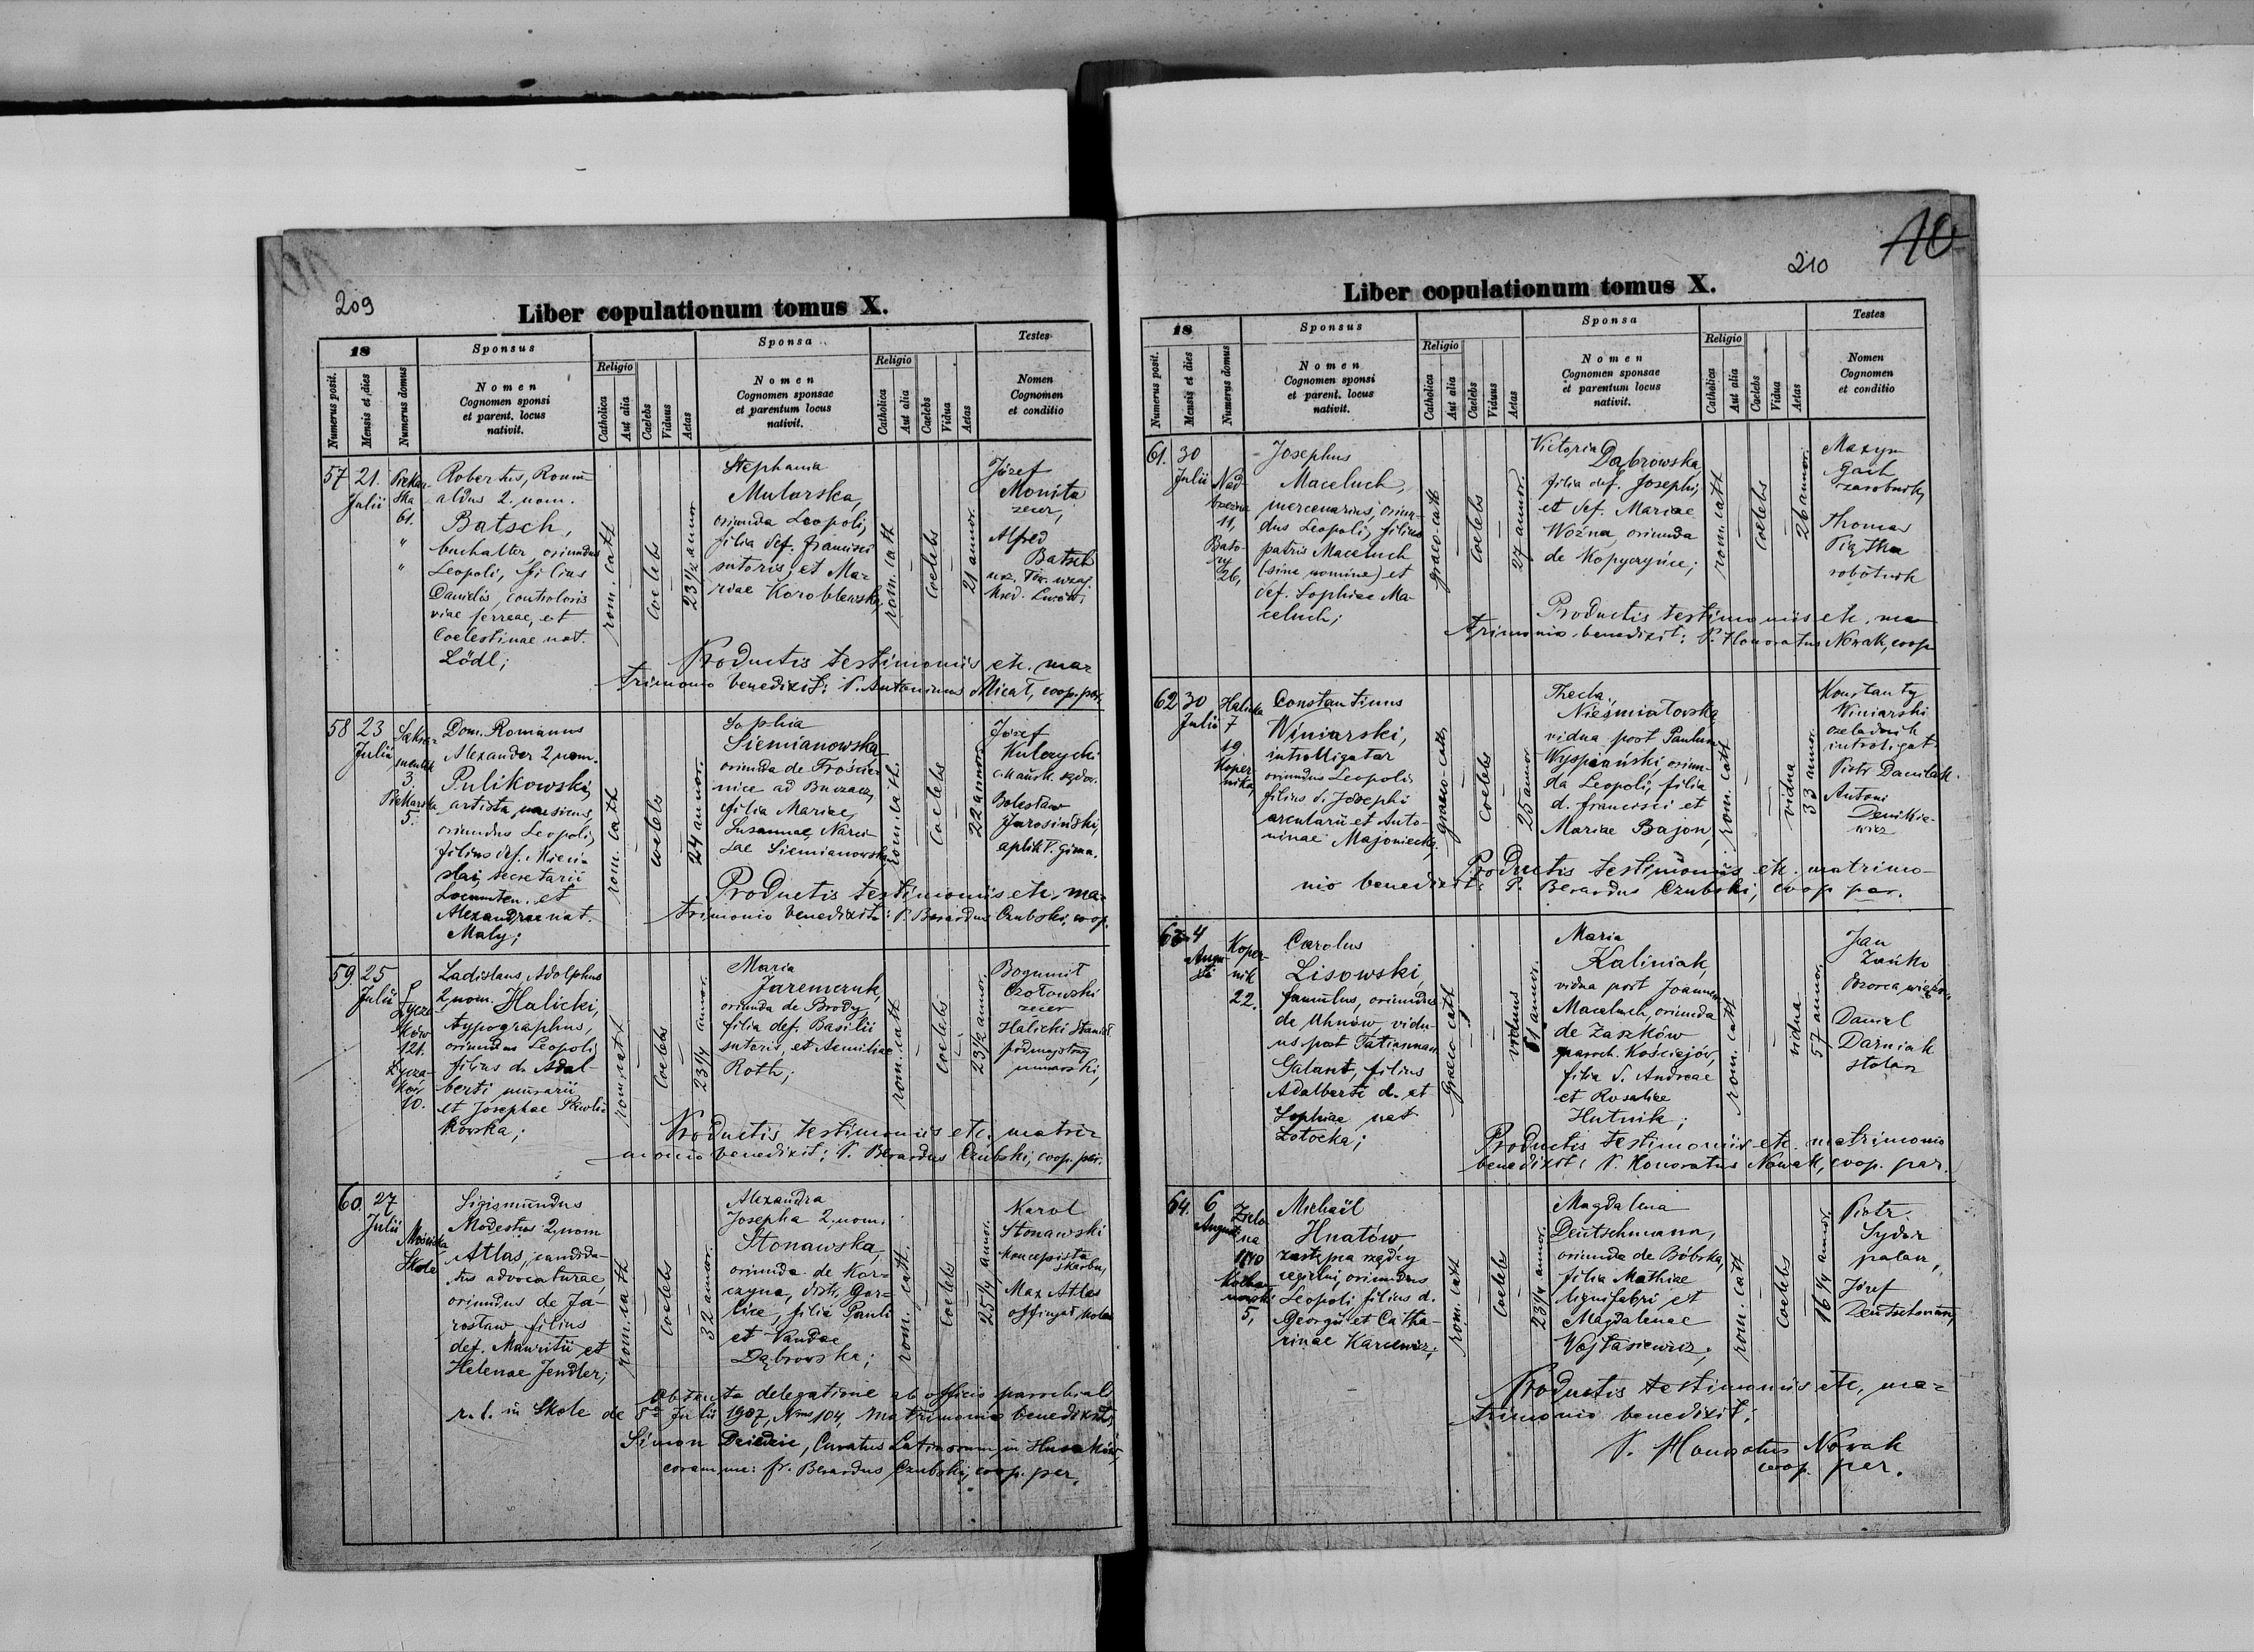 209
Liber copulationum tomus X.
18
Sponsus
Sponsa
Testes
Religio
Religio
Numerus posit.
Mensis et dies
Numerus domus
Nomen
Cognomen sponsi
et parent. locus
nativit.
Catholica
Aut alia
Caelebs
Viduus
Aetas
Nomen
Cognomen sponsae
et parentum locus
nativit.
Catholica
Aut alia
Caelebs
Vidua
Aetas
Nomen
Cognomen
et conditio
57
21.
Julii
Piekar-
ska
61.
"
"
Robertus, Romu-
aldus 2. nom.
Batsch,
buchalter, oriundus
Leopoli, filius
Danielis, controloris
viae ferreae, et
Coelestinae nat.
Lödl;
rom. cath
Coelebs
23 1/2 annor
Stephania
Mularska,
oriunda Leopoli,
filia def. Francisci
sutoris, et Ma-
riae Koroblewska;
rom. cath
Coelebs
21 annor.
Józef
Monita
zecer,
Alfred
Batsch
urz. Tow. wzaj.
kred. Lwów;
Productis testimoniis etc. ma-
trimonio benedixit: P. Antoninus Micał, coop. par.
58
23
Julii
3.
Piekarska
5.
Dom. Romanus
Alexander 2 nom.
Pulikowski,
artista musicus,
oriundus Leopoli,
filius def. Miecis-
lai, secretarii
Locumten. et
Alexandrae nat.
Maly;
rom. cath
coelebs
24 annor.
Sophia
Siemianowska
oriunda de Trościa-
nice ad
filia Mariae,
Susannae, Narci-
sae Siemianowska
rom. cath.
Coelebs
22 annor.
Józef
Kulczycki
Bolesław
Jarosiński,
aplikt. gimn.
Productis testimoniis etc. ma-
trimonio benedixit: P. Berardus Czubski, coop.
59.
25
Julii
Łycza-
ków
121.
Łycza-
ków
10.
Ladislaus, Adolphus
2 nom. Halicki,
typographus,
oriundus Leopoli
filius d. Adal-
berti murarii
et Josephae Pawli-
kowska;
rom. cath
Coelebs
23 1/4 annor.
Maria
Jaremczuk,
oriunda de Brody
filia def. Basilii
sutoris, et Aemiliae
Roth;
rom. cath
Coelebs
23 1/2 annor.
Bogumił
Czołowski
zecer
Halicki Stanisł.
podmajstrzy
murarski,
Productis testimoniis etc. matri-
monio benedixit: P. Berardus Czubski, coop. par.
60.
27
Julii
Mościska
Skole
Sigismundus
Modestus 2. nom
Atlas, candida-
tus advocaturae,
oriundus de Ja-
rosław filius
def. Mauritii et
Helenae Jendler;
rom. cath
Coelebs
32 annor.
Alexandra
Josepha 2. nom.
Stonawska,
oriunda de Kor-
czyna, distr. Gor-
lice, filia Pauli
et Vandae
Dąbrowska;
rom. cath.
Coelebs
25 1/4 annor.
Karol
Stonawski
koncepista
skarbu,
Max Atlas
Obtenta delegatione ab officio parochiali
r. l. in Skole de 8 Julii 1907, Nro 104, matrimonio benedixit,
Simon Dziedzic, Curatus Latinorum in Husaków,
coram me: fr. Berardus Czubski, coop. par.
210
10
Liber copulationum tomus X.
18
Sponsus
Sponsa
Testes
Religio
Religio
Numerus posit.
Mensis et dies
Numerus domus
Nomen
Cognomen sponsi
et parent. locus
nativit.
Catholica
Aut alia
Caelebs
Viduus
Aetas
Nomen
Cognomen sponsae
et parentum locus
nativit.
Catholica
Aut alia
Caelebs
Vidua
Aetas
Nomen
Cognomen
et conditio
61.
30
Julii
Nad-
brzeżna
11,
Bato-
ry
26,
Josephus
Maceluch,
mercenarius, oriun-
dus Leopoli, filius
patris Maceluch
(sine nomine) et
def. Sophiae Ma-
celuch;
graeco-cath
Coelebs
27 annor.
Victoria
Dąbrowska,
filia def. Josephi,
et def. Mariae
Woźna, oriunda
de Kopyczyńce;
rom. cath
Coelebs
26 annor.
Maxym
Gach
zarobnik,
Thomas
Piątka
robotnik
Productis testimoniis etc. ma-
trimonio benedixit: P. Honoratus Nowak, coop
62
30
Julii
Halicka
7
19
Koper-
nika,
Constantinus
Winiarski,
introlligator
oriundus Leopoli
filius d. Josephi
arcularii et Anto-
ninae Majoniecka,
graeco-cath,
Coelebs
25 annor
Thecla,
Nieśmiałowska
vidua post Paulum
Wyspiański, oriun-
da Leopoli, filia
d. Francisci et
Mariae Bajon,
rom. cath
vidua
33 annor.
Konstanty
Winiarski
czeladnik
introligat.
Piotr Danilak
Antoni
Denikie-
wicz
Productis testimoniis etc. matrimo-
nio benedixit: P. Berardus Czubski, coop par.
63
4
Augu-
sti
Koper-
nik
22.
Carolus
Lisowski,
famulus, oriundus
de Uhnów, vidu-
us post Tatiannam
Galant, filius
Adalberti d. et
Sophiae nat
Zołocka;
graeco cath
viduus
61 annor.
Maria
Kaliniak,
vidua post Joannem
Maceluch, oriunda
de Zaszków
paroch. Kościejów,
filia d. Andreae
et Rosaliae
Hutnik;
rom. cath
vidua
57 annor.
Jan
Zańko
Dozorca więzien.
Daniel
Darniak
stolarz
Productis testimoniis etc. matrimonio
benedixit: P. Honoratus Nowak, coop. par.
64.
6
Augusti
Zielo-
na
1110
Kocha-
nowski
5,
Michaël
Hnatów
zastępca rządcy
cegielni, oriundus
Leopoli, filius d.
Georgii et Catha-
rinae Karcewicz;
rom. cath
Coelebs
23 1/4 annor.
Magdalena
Deutschmann,
oriunda de Bóbrka,
filia Mathiae
lignifabri et
Magdalenae
Wojtasiewicz;
rom. cath
Coelebs
16 1/4 annor.
Piotr
Sydor
palacz,
Józef
Deutschmann,
Productis testimoniis etc, ma-
trimonio benedixit:
P. Honoratus Nowak
coop. par.